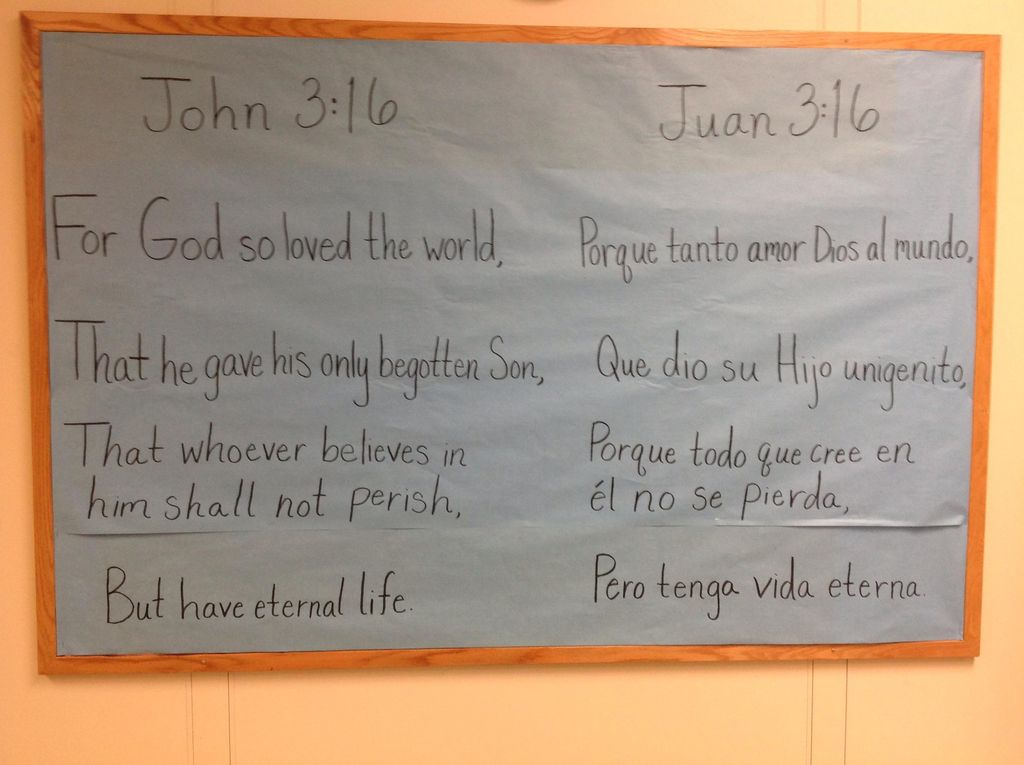 John 3:16
For God so loved the world,
That he gave his only begotten Son,
That whoever believes in
him shall not perish,
But have eternal life.
Juan 3:16
Porque tanto amor Dios al mundo,
Que dio su Hijo unigenito,
Porque todo que cree en
él no se pierda,
Pero tenga vida eterna.